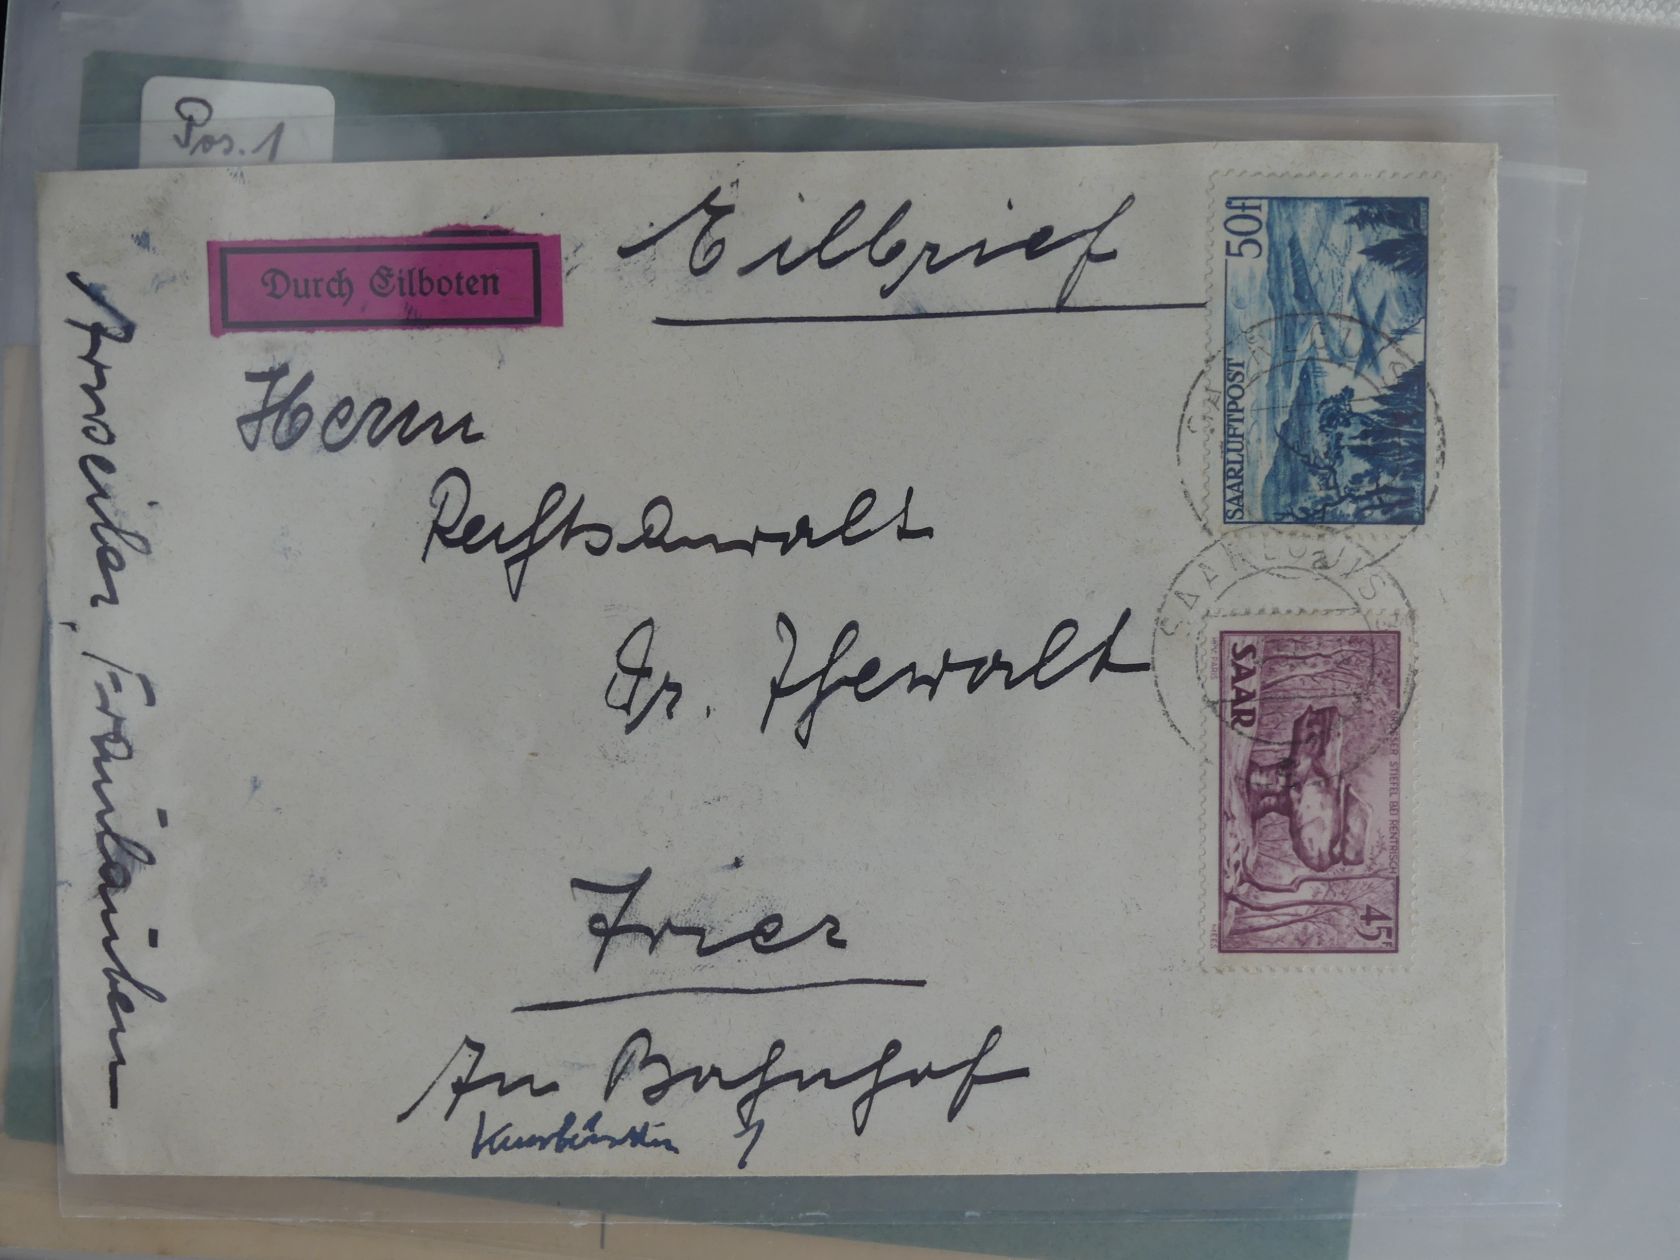 Pos. 1
Durch Eilboten
Eilbrief
Herrn
Rechtsanwalt
Dr. Thewalt
Trier
Am Bahnhof
50f
SAARLUFTPOST
SAARLOUIS
a
SAAR
GROSSER STIEFEL BEI RENTRISCH
45F
MEES